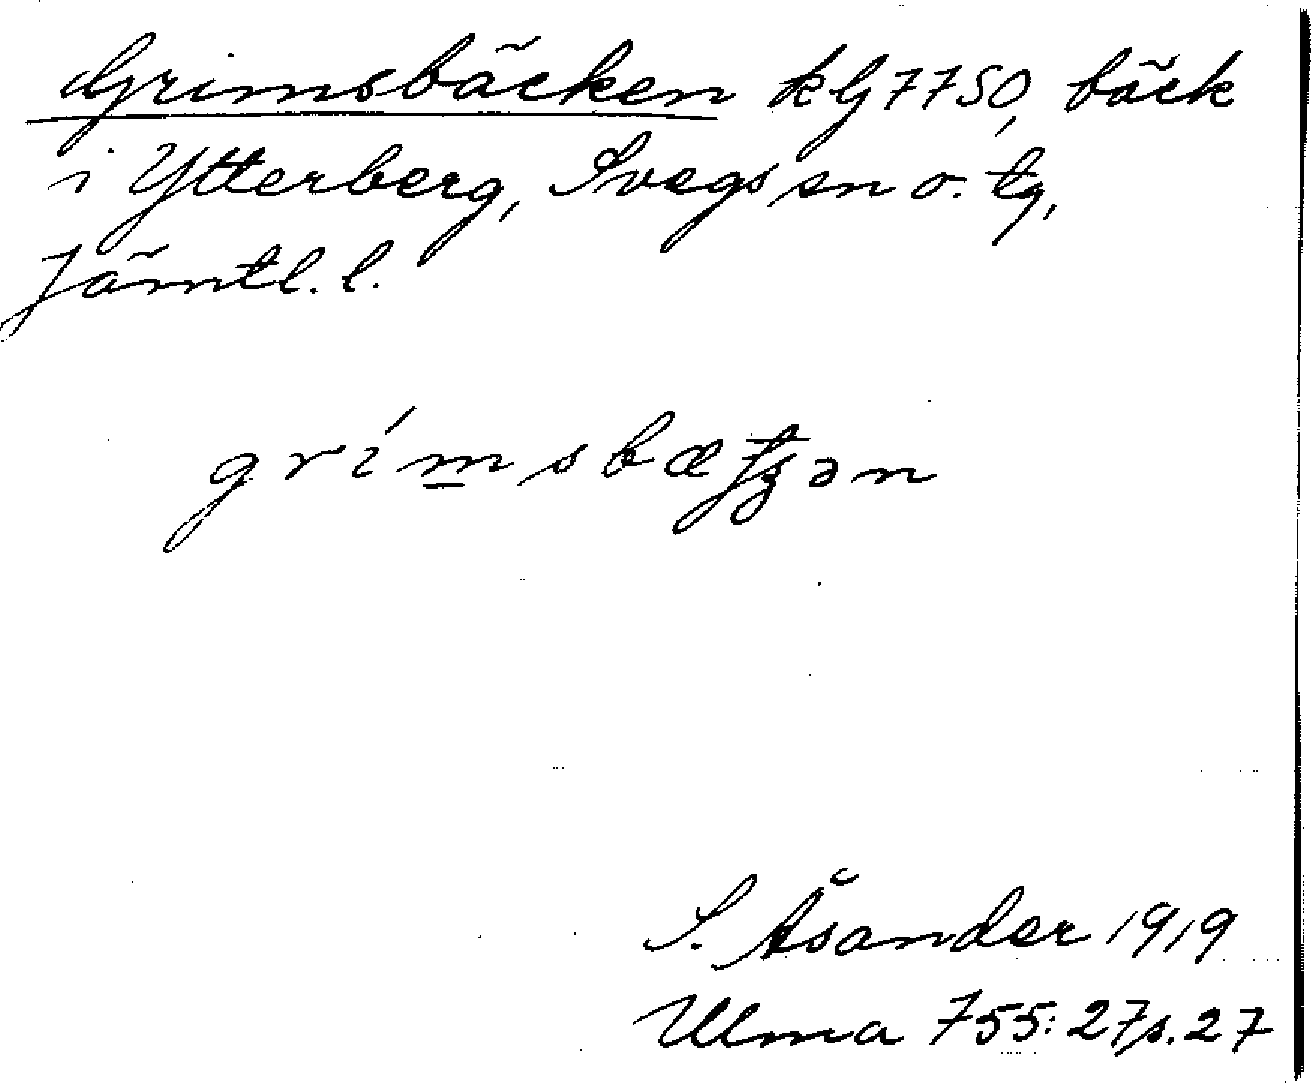 Grimsbäcken kG7750, bäck
i Ytterberg, Svegs sn o. tg,
Jämtl. l.
grímsbæ
S. Åsander 1919
Ulma 755:27 s. 27